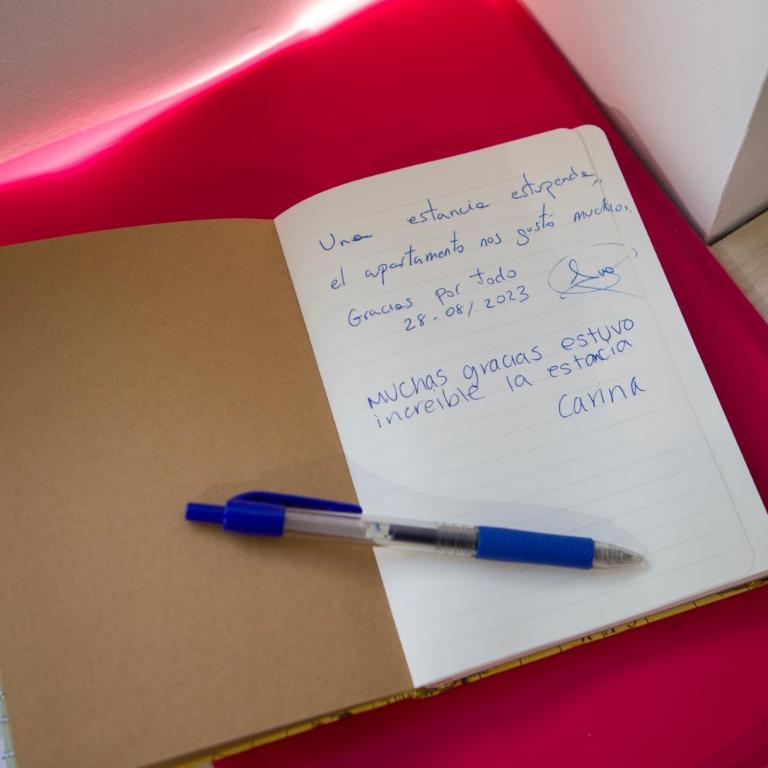 Una estancia estupenda,
el apartamento nos gustó mucho.
Gracias por todo
28-08/2023
Muchas gracias estuvo
increible la estancia
Carina